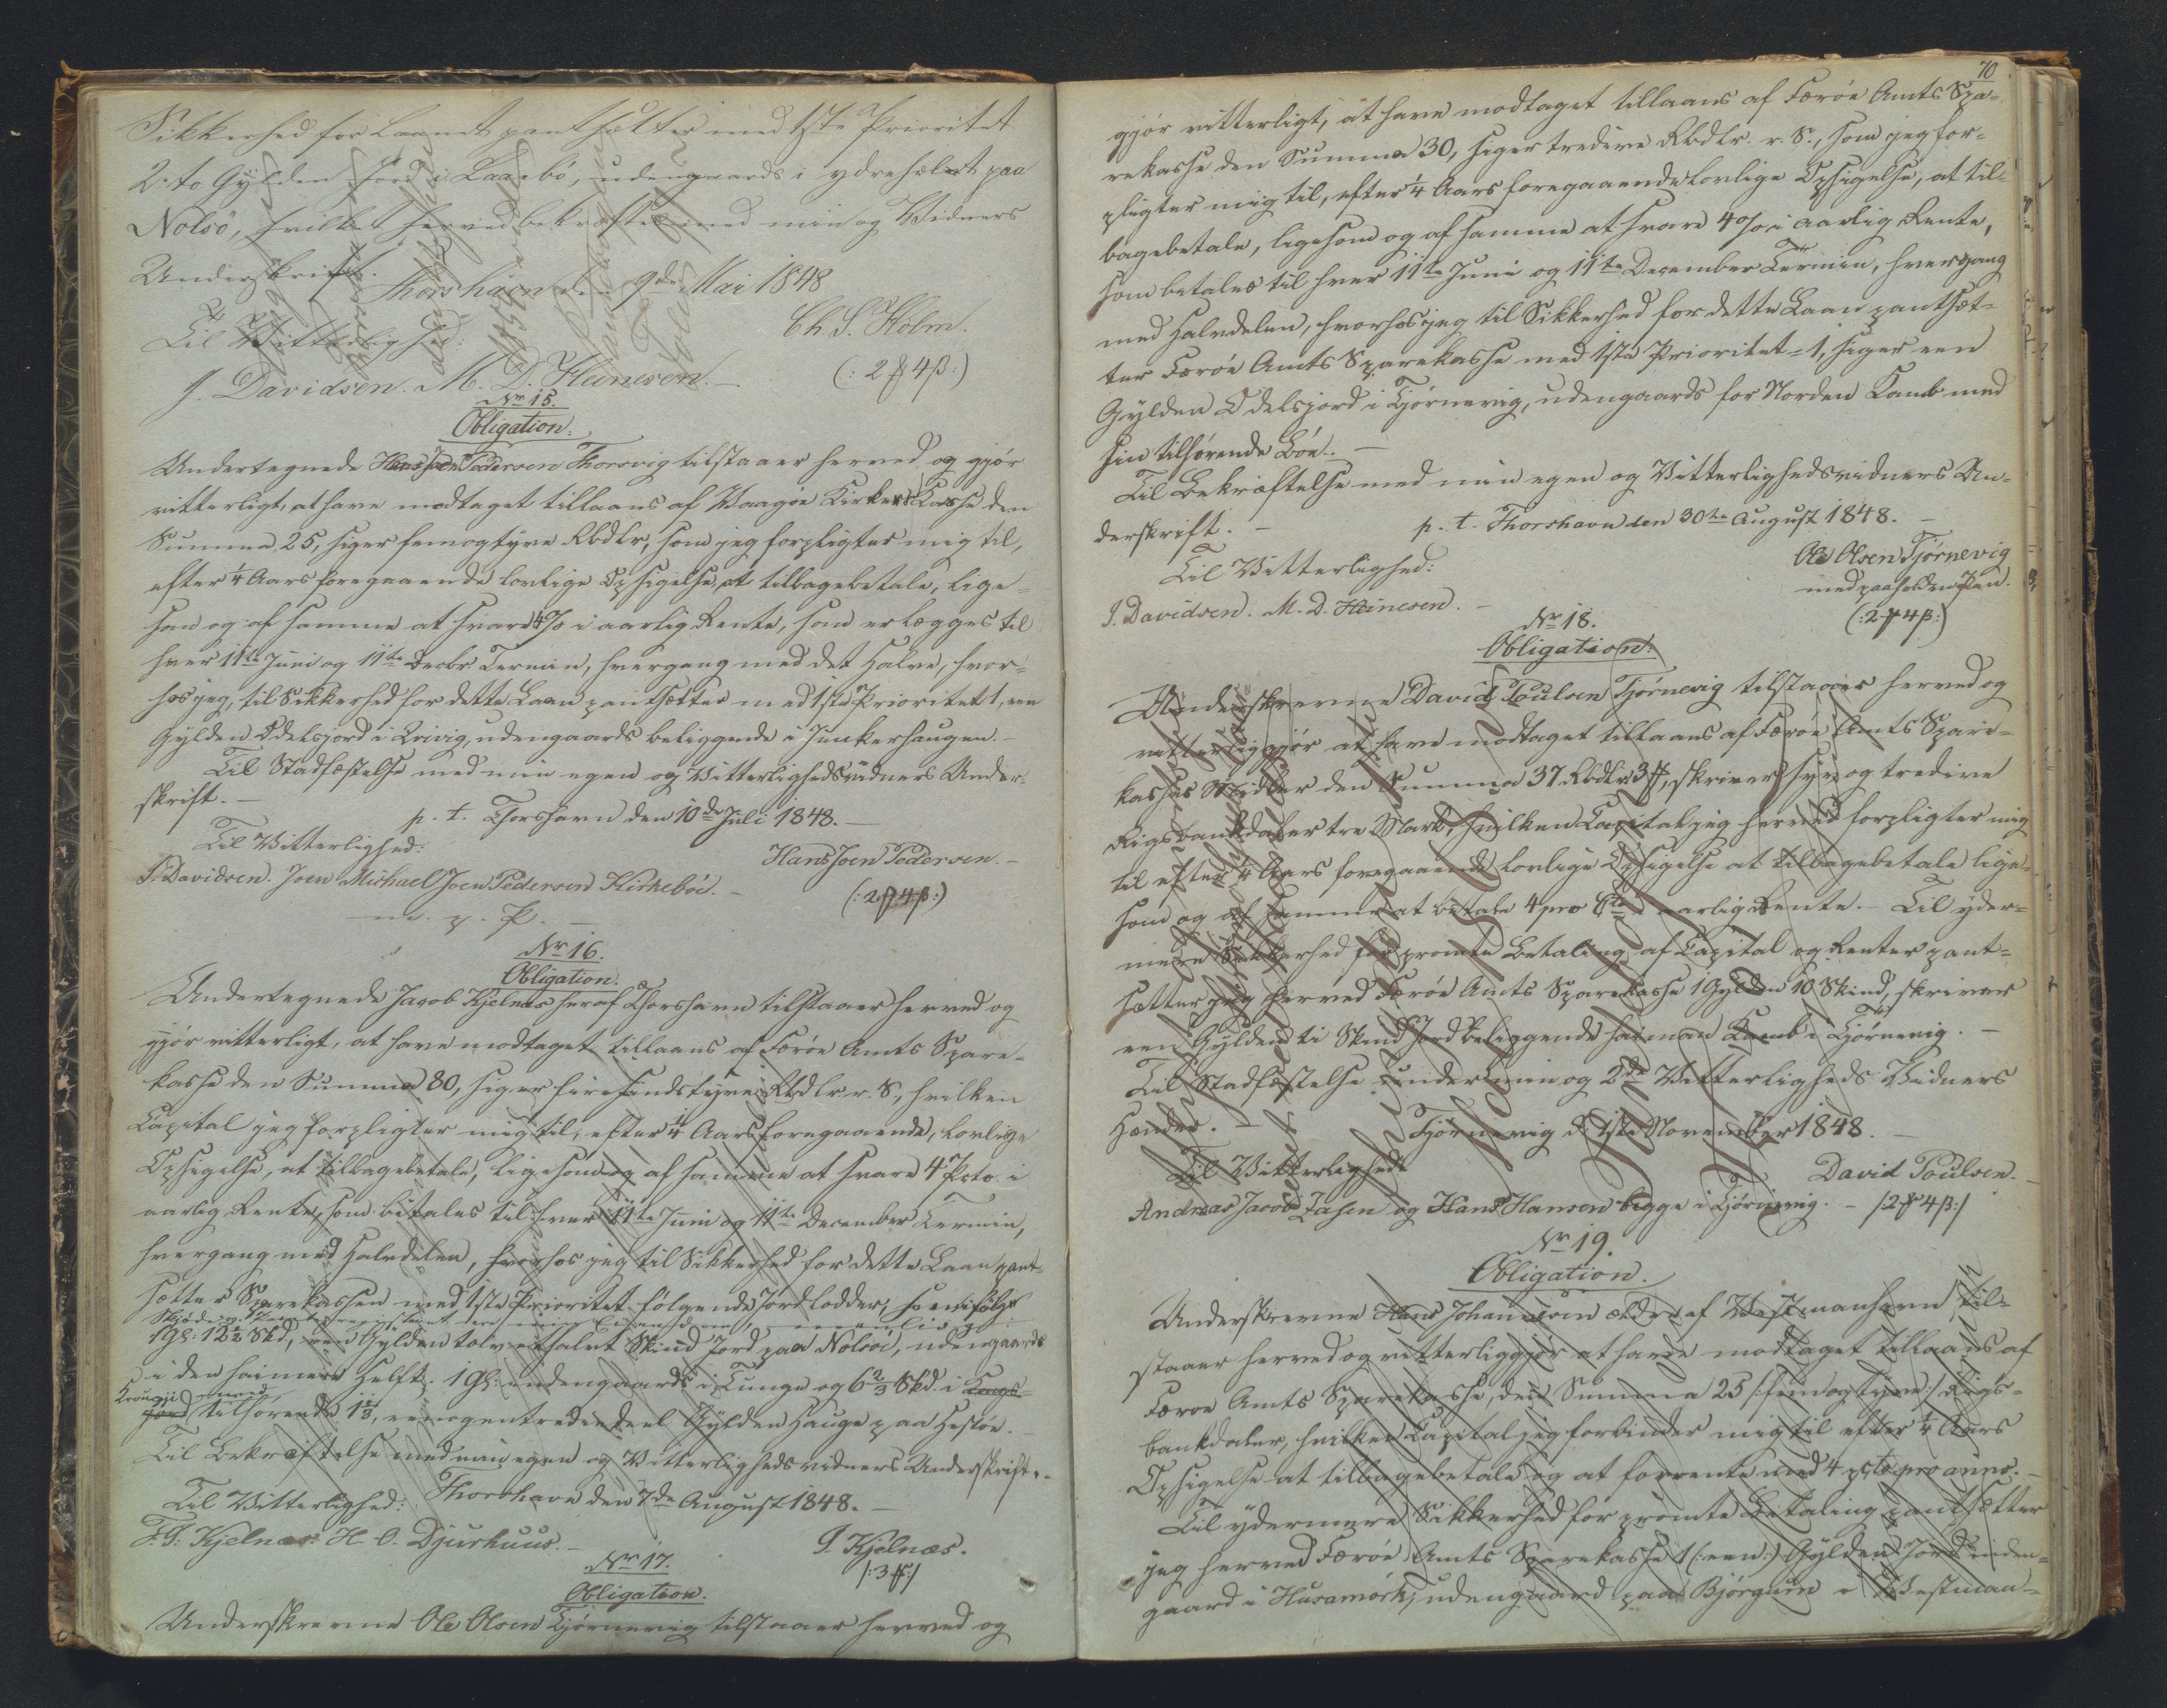 Sikkerhed for Laanet pantsætter med 1ste Prioritet
2. to Gylden Jord i Laaebö, udengaards i ydrehælvt paa
Nolsö, hvilket herved bekræftes med min og Vidners
Underskrift.
Thorshavn den 9de Mai 1848
Til Vitterlighed:
Ch. S. Holm.
J. Davidsen. M. D. Heinesen. —
(: 2 ƒ 4 β:)
No 15.
Obligation.
Undertegnede Hans Joen Pedersen Thorsvig tilstaaer herved og gjör
vitterligt, at have modtaget tillaans af Waagöe Kirkes Kasse den
Summa 25, siger femogtyve Rbdlr, som jeg forpligter mig til,
efter 1/4 Aars foregaaende lovlige Opsigelse, at tilbagebetale, lige-
som og af samme at svare 4% i aarlig Rente, som erlægges til
hver 11te Juni og 11te Decbr Termin, hvergang med det Halve, hvor-
hos jeg, til Sikkerhed for dette Laan pantsætter med 1ste Prioritet 1, een
Gylden Odelsjord i Qvivig, udengaards beliggende i Junkerhaugen. —
Til Stadfæstelse med min egen og Vitterlighedsvidners Under-
skrift. —
p. t. Thorshavn den 10de Juli 1848. —
Til Vitterlighed:
Hans Joen Pedersen. —
J. Davidsen. Joen Michael Joen Pedersen Kirkeböe. —
(: 2 ƒ 4 β:)
m. p. P. —
No 16.
Obligation.
Undertegnede Jacob Kjelnæs her af Thorshavn tilstaaer herved og
gjör vitterligt, at have modtaget tillaans af Færöe Amts Spare-
kasse den Summa 80, siger firesindstyve Rbdlr r. S., hvilken
Capital jeg forpligter mig til, efter 1/4 Aars foregaaende, lovlige
Opsigelse, at tilbagebetale, ligesom og af samme at svare 4 Pcto i
aarlig Rente, som betales til hver 11te Juni og 11te December Termin,
hvergang med Halvdelen, hvorhos jeg til Sikkerhed for dette Laan pant-
sætter Sparekassen med 1ste Prioritet følgende Jordlodder, som ifølge
1 Gl: 12 1/2 Skd, een Gylden tolv et halvt Skind Jord paa Nolsöe, udengaards
i den heimere Helft. 1 Gl: indengaards i Tunge og 6 2/3 Skd. i Kongs-
Jord tilhørende 1 1/3, een og en trediedeel Gylden Hauge paa Hestöe.
Til Bekræftelse med min egen og Vitterlighedsvidners Underskrift. —
Thorshavn den 7de August 1848. —
Til Vitterlighed:
F. J. Kjelnæs. H. O. Djurhuus. —
J. Kjelnæs.
/: 3 ƒ :/
No 17.
Obligation.
Underskrevne Ole Olsen Tjørnevig tilstaaer herved og
70
gjör vitterligt, at have modtaget tillaans af Færöe Amts Spa-
rekasse den Summa 30, siger tredive Rbdlr. r. S., som jeg for-
pligter mig til, efter 1/4 Aars foregaaende lovlige Opsigelse, at til-
bagebetale, ligesom og af samme at svare 4% i aarlig Rente,
som betales til hver 11te Juni og 11te December Termin, hvergang
med Halvdelen, hvorhos jeg til Sikkerhed for dette Laan pantsæt-
ter Færöe Amts Sparekasse med 1ste Prioritet = 1, siger een
Gylden Odelsjord i Tjørnevig, udengaards for Norden Kamb med
sin tilhørende Böe. —
Til Bekræftelse med min egen og Vitterlighedsvidners Un-
derskrift. —
p. t. Thorshavn den 30te August 1848. —
Til Vitterlighed:
Ole Olsen Tjørnevig
med paaholden Pen.
J. Davidsen. M. D. Heinesen. —
(: 2 ƒ 4 β:)
No 18.
Obligation:
Underskrevne David Poulsen Tjørnevig tilstaaer herved og
vitterliggjør at have modtaget tillaans af Færöe Amts Spare-
kasses Midler den Summa 37 Rbdlr 3 ƒ, skriver syv og tredive
Rigsbankdaler tre Mark, hvilken Capital jeg herved forpligter mig
til efter 1/4 Aars foregaaende lovlige Opsigelse at tilbagebetale lige-
som og af samme at betale 4 pro Cto i aarlig Rente. — Til yder-
mere Sikkerhed for promte Betaling af Capital og Renter pant-
sætter jeg herved Færöe Amts Sparekasse 1 Gylden 10 Skind, skriver
een Gylden ti Skind Jord beliggende heiman Kamb i Tjørnevig. —
Til Stadfæstelse under min og 2de Vitterligheds Vidners
Hænder. —
Tjørnevig d. 1ste November 1848. —
Til Vitterlighed:
David Poulsen. —
Andreas Jacob Zasen og Hans Hansen begge i Tjørnevig. — /: 2 ƒ 4 β:/
No 19.
Obligation.
Underskrevne Hans Johannesen ældre af Westmanhavn til-
staaer herved og vitterliggjör at have modtaget tillaans af
Færøe Amts Sparekasse, den Summa 25 /: fem og tyve:/ Rigs-
bankdaler, hvilken Capital jeg forbinder mig til efter 1/4 Aars
Opsigelse at tilbagebetale og at forrente med 4 pcto pro anno. —
Til ydermere Sikkerhed for promte Betaling pantsætter
jeg herved Færöe Amts Sparekasse 1 (: een:) Gylden Jord inden-
gaard i Husamörk, udengaard paa Bjørgum i Westman-